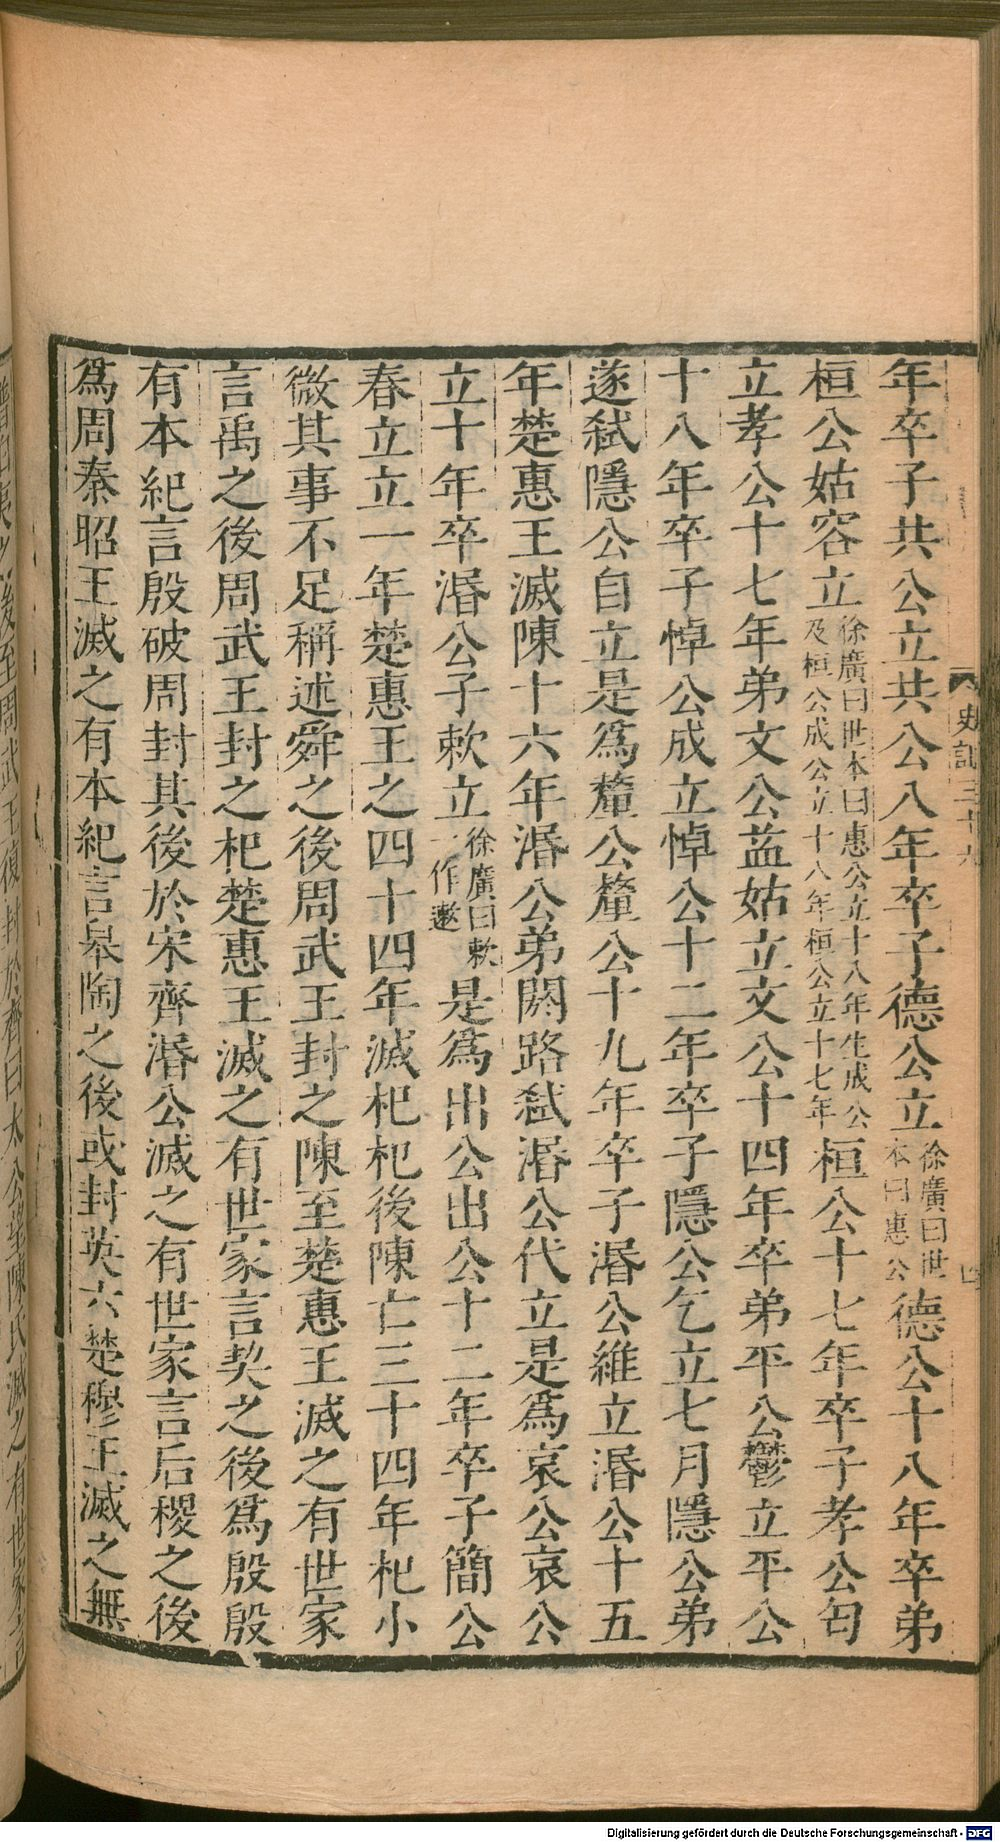 年卒子共公立共公八年卒子德公立徐廣曰世本曰惠公德公十八年卒弟
桓公姑容立徐廣曰世本曰惠公立十八年生成公及桓公成公立十八年桓公立十七年桓公十七年卒子孝公匄
立孝公十七年弟文公益姑立文公十四年卒弟平公鬱立平公
十八年卒子悼公成立悼公十二年卒子隱公乞立七月隱公弟
遂弑隱公自立是爲釐公釐公十九年卒子湣公維立湣公十五
年楚惠王滅陳十六年湣公弟閼路弑湣公代立是爲哀公哀公
立十年卒湣公子欶立徐廣曰欶一作遬是爲出公出公十二年卒子簡公
春立立一年楚惠王之四十四年滅杞杞後陳亡三十四年杞小
微其事不足稱述舜之後周武王封之陳至楚惠王滅之有世家
言禹之後周武王封之杞楚惠王滅之有世家言契之後爲殷殷
有本紀言殷破周封其後於宋齊湣公滅之有世家言后稷之後
爲周秦昭王滅之有本紀言皋陶之後或封英六楚穆王滅之無
史記三十六
四
後至周武王復封於齊曰太公望陳氏滅之有世家言
Digitalisierung gefördert durch die Deutsche Forschungsgemeinschaft - DFG